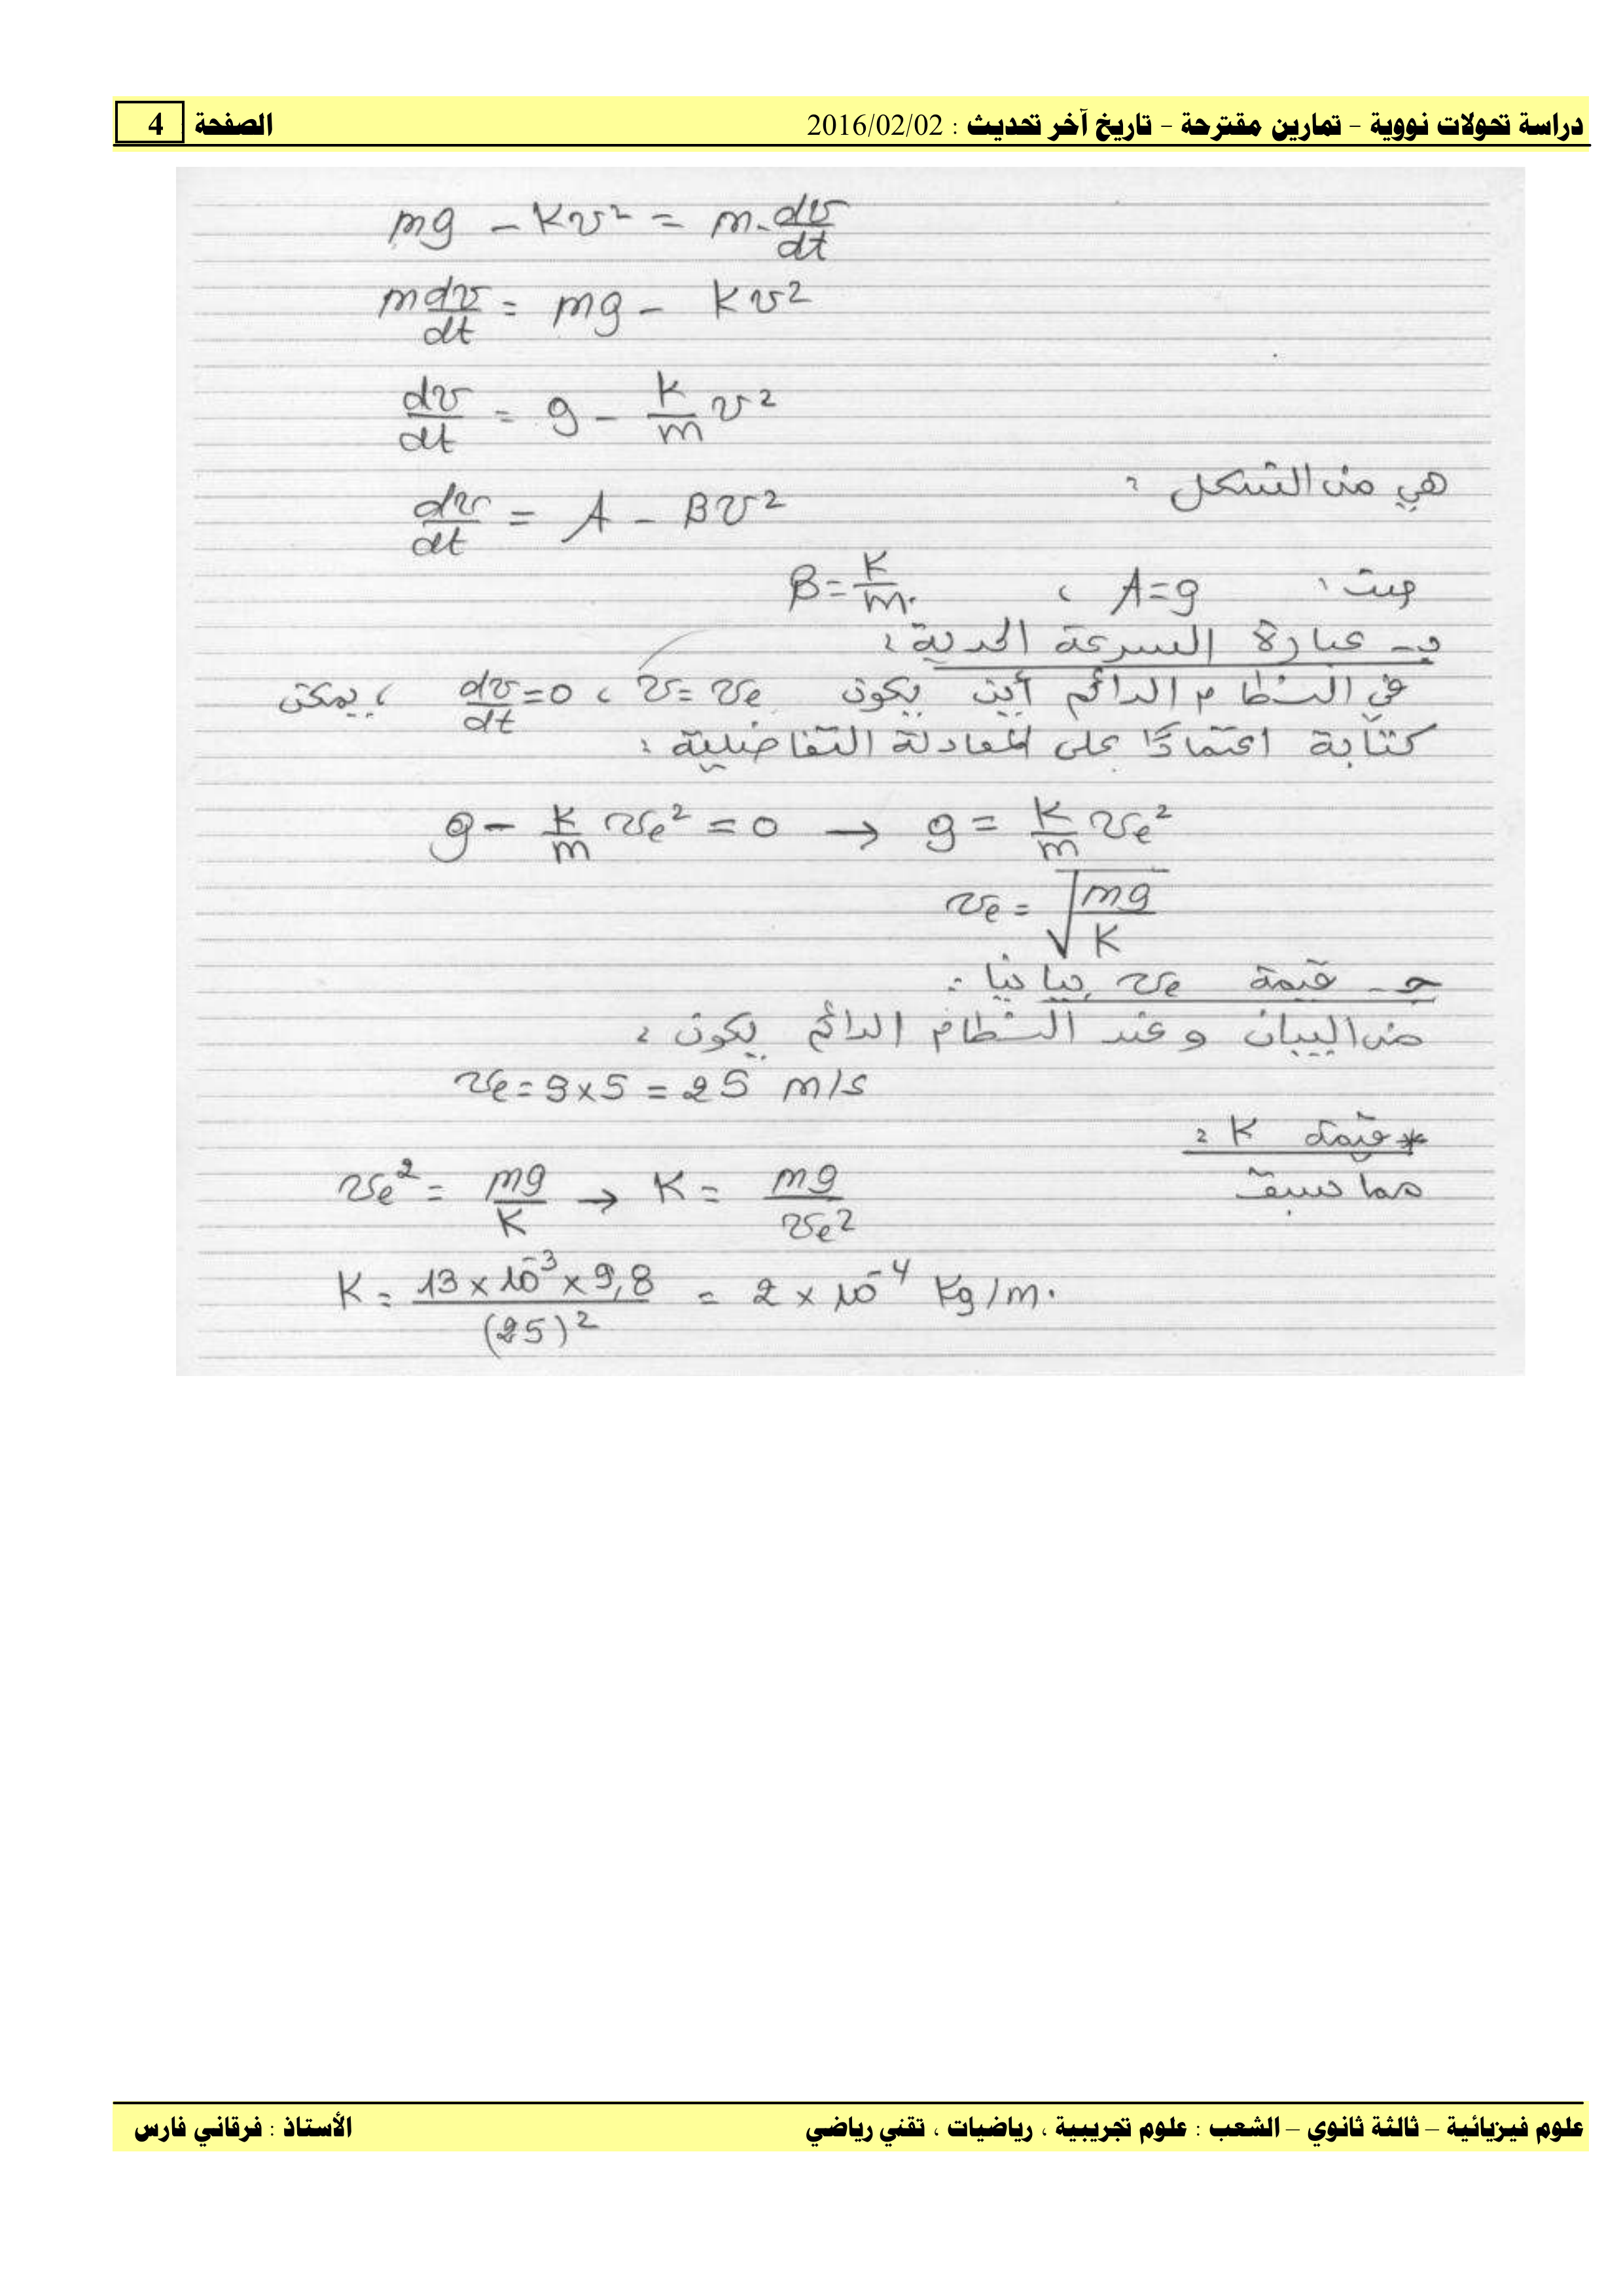 دراسة تحولات نووية - تمارين مقترحة - تاريخ آخر تحديث : 2016/02/02 الصفحة 4
mg - Kv² = m.dv/dt
m dv/dt = mg - Kv²
dv/dt = g - k/m v²
هي من الشكل :
dv/dt = A - Bv²
حيث : A=g ، B=K/m.
ب- عبارة السرعة الحدية :
في النظام الدائم أين يكون v=ve ، dv/dt=0 ، يمكن
كتابة اعتمادًا على المعادلة التفاضلية :
g - k/m ve² = 0 → g = K/m ve²
ve = √(mg/K)
جـ- قيمة ve بيانيا :
من البيان و عند النظام الدائم يكون :
ve = 5×5 = 25 m/s
* قيمة K :
مما سبق
ve² = mg/K → K = mg/ve²
K = 13×10⁻³×9,8/(25)² = 2×10⁻⁴ Kg/m.
علوم فيزيائية – ثالثة ثانوي – الشعب : علوم تجريبية ، رياضيات ، تقني رياضي الأستاذ : فرقاني فارس